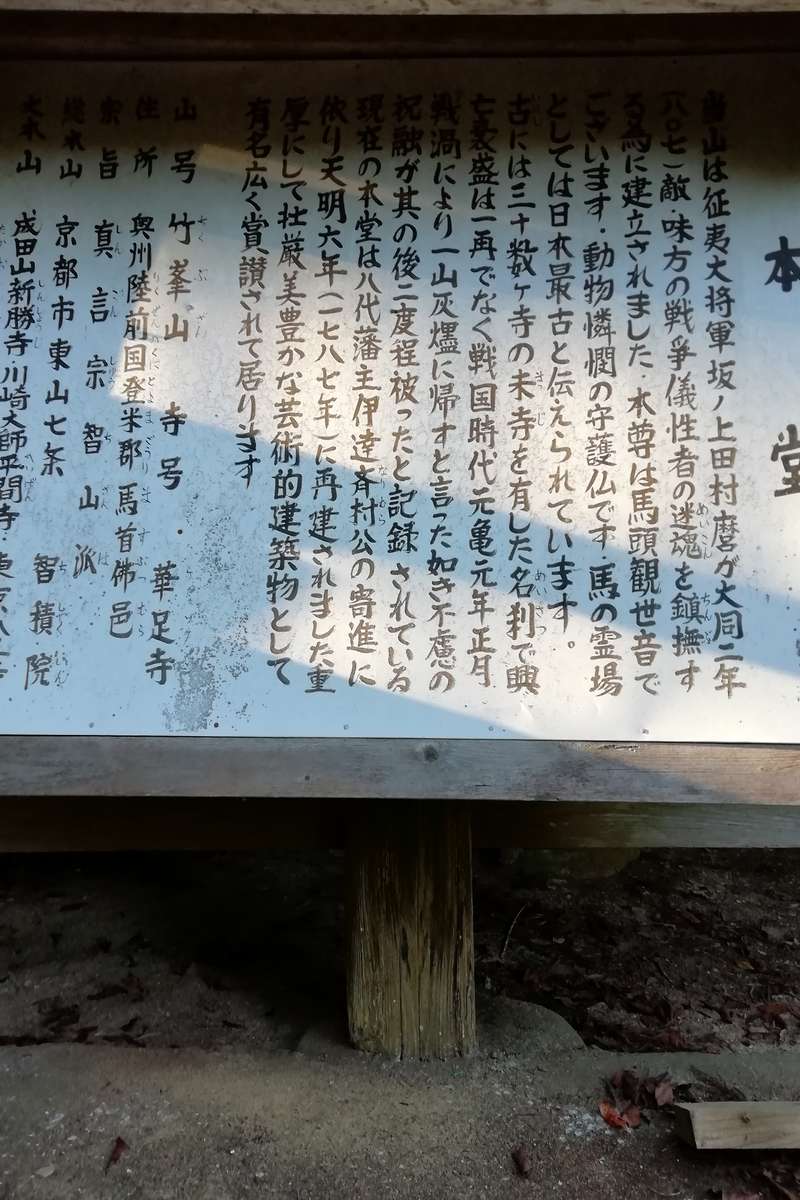 本堂
当山は征夷大将軍坂ノ上田村麿が大同二年
八〇七)敵・味方の戦争儀性者の迷魂を鎮撫す
る為に建立されました・本尊は馬頭観世音で
ございます・動物憐憫の守護仏です馬の霊場
としては日本最古と伝えられています。
古には三十数ヶ寺の末寺を有した名刹で興
亡衰盛は一再でなく戦国時代元亀元年正月
戦渦により一山灰燼に帰すと言った如き不慮の
祝融が其の後二度程被ったと記録されている
現在の本堂は八代藩主伊達斉村公の寄進に
依り天明六年(一七八七年)に再建されました重
厚にして壮厳美豊かな芸術的建築物として
有名広く賞讃されて居ります
山号 竹峯山 寺号・華足寺
住所 奥州陸前国登米郡馬首佛邑
宗旨 真言宗智山派
総本山 京都市東山七条 智積院
大本山 成田山新勝寺川崎大師平間寺・